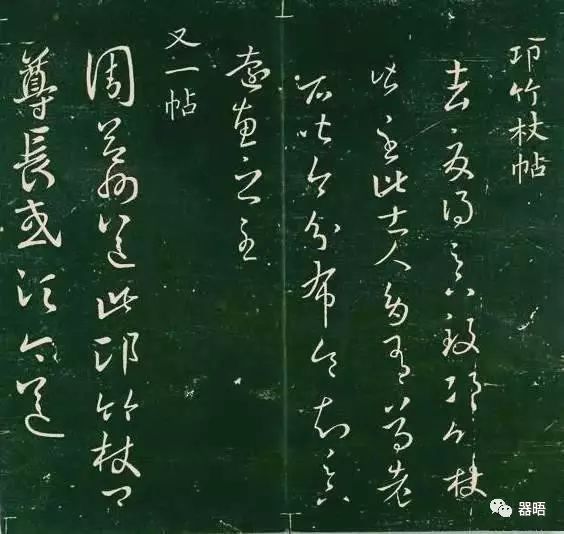 邛竹杖帖
去夏得足下致邛竹杖
皆至此士人多有尊老
者皆即分布令知足下
遠惠之至
又一帖
周益州送此邛竹杖卿
尊長或須今送
器晤